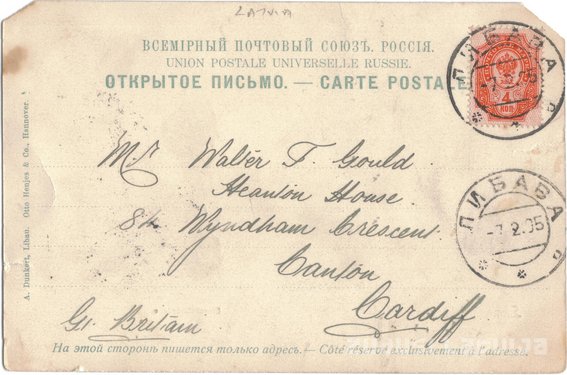 LATVIA
ВСЕМІРНЫЙ ПОЧТОВЫЙ СОЮЗЪ. РОССІЯ.
UNION POSTALE UNIVERSELLE RUSSIE.
ОТКРЫТОЕ ПИСЬМО. — CARTE POSTALE
ЛИБАВА
-7.2.05
4
КОП
Mr Walter F. Gould
Heanton House
84 Wyndham Crescent
Canton
Cardiff
Gt. Britain
ЛИБАВА
-7.2.05
На этой сторонѣ пишется только адресъ. — Côté réservé exclusivement à l'adresse.
A. Dunkert, Libau. Otto Henjes & Co., Hannover.